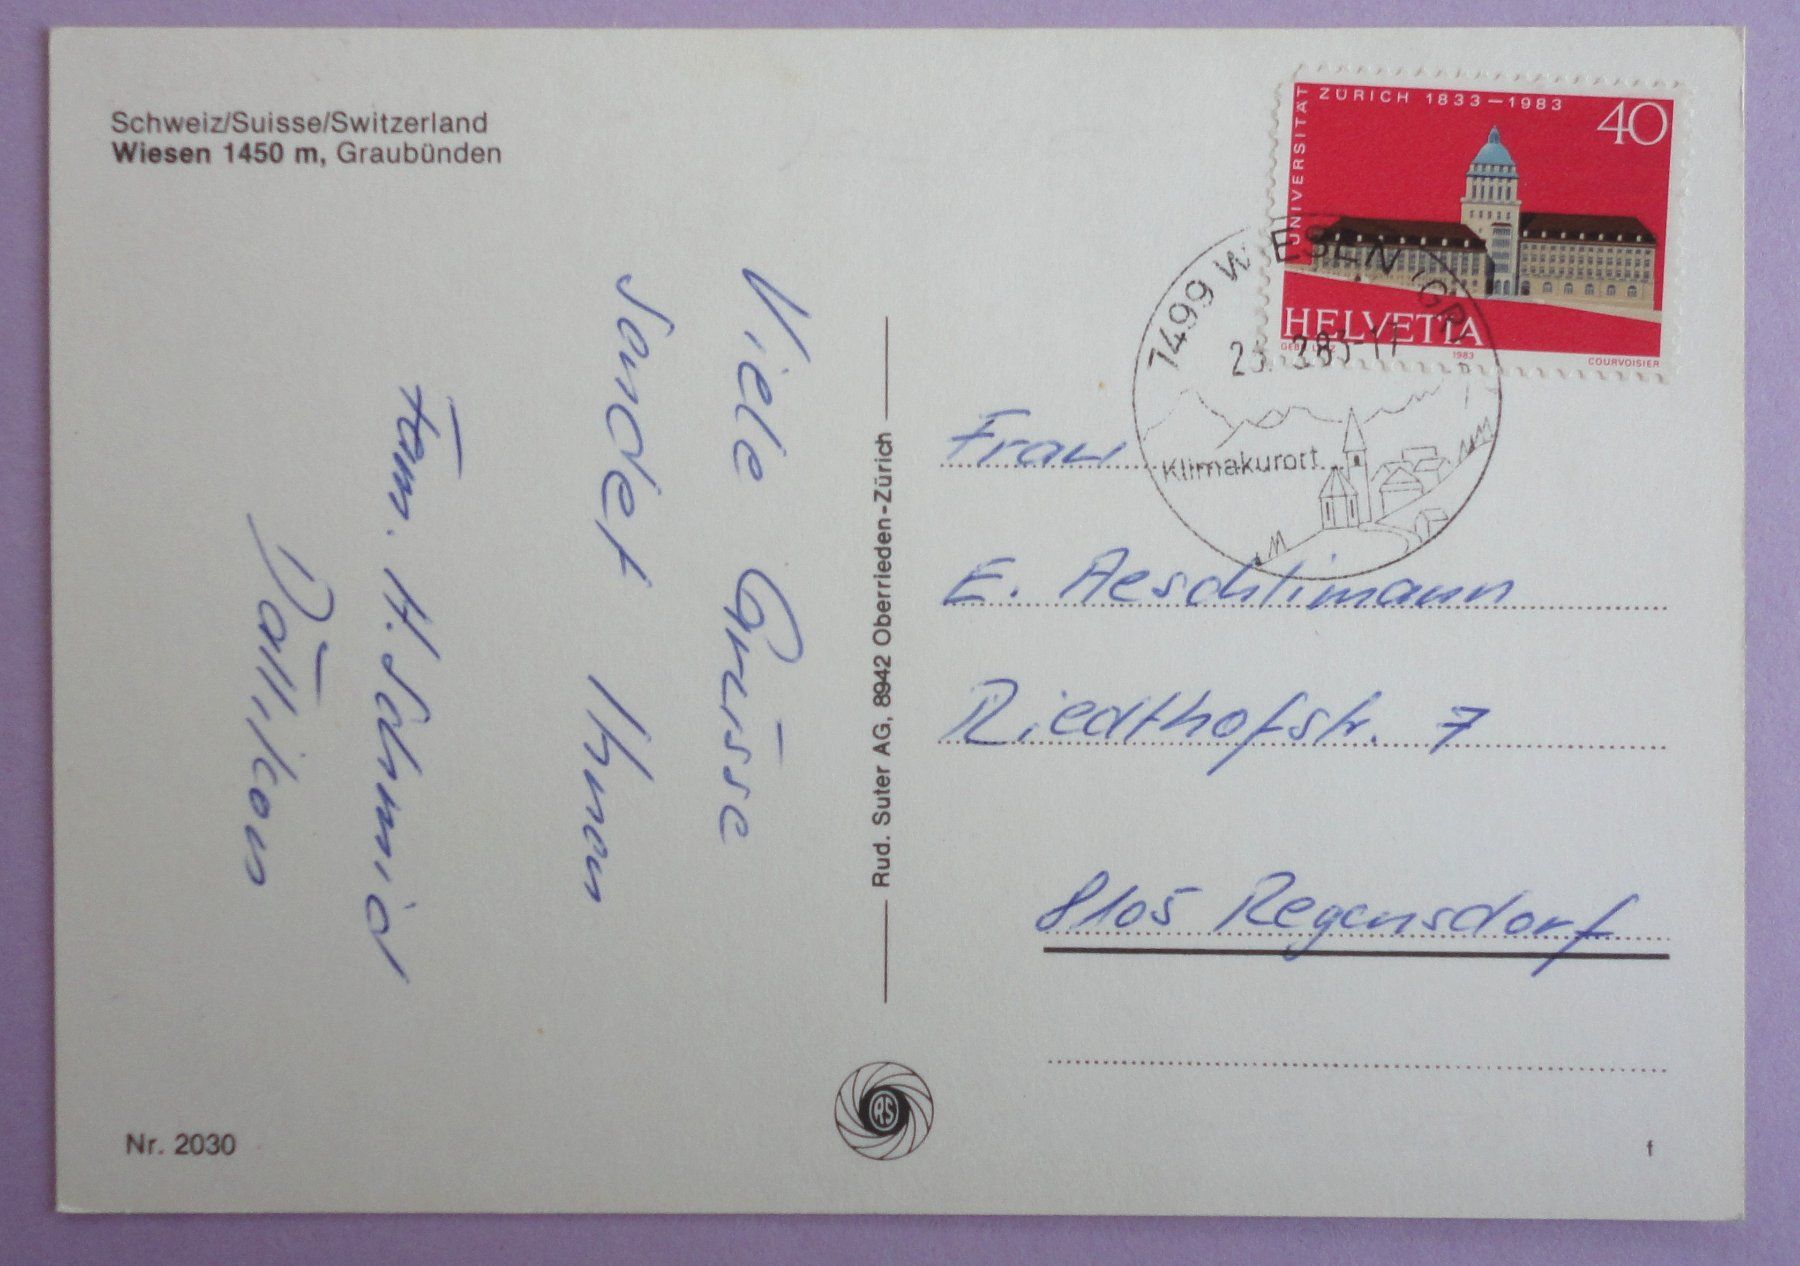 Schweiz/Suisse/Switzerland
Wiesen 1450 m, Graubünden
Viele Grüsse
sendet Ihnen
Fam. H. Schmid
Dällikon
Nr. 2030
Rud. Suter AG, 8942 Oberrieden-Zürich
RS
UNIVERSITÄT ZÜRICH 1833–1983
40
HELVETIA
1983
COURVOISIER
7499 WIESEN (GR)
Klimakurort
Frau
E. Aeschlimann
Riedthofstr. 7
8105 Regensdorf
f